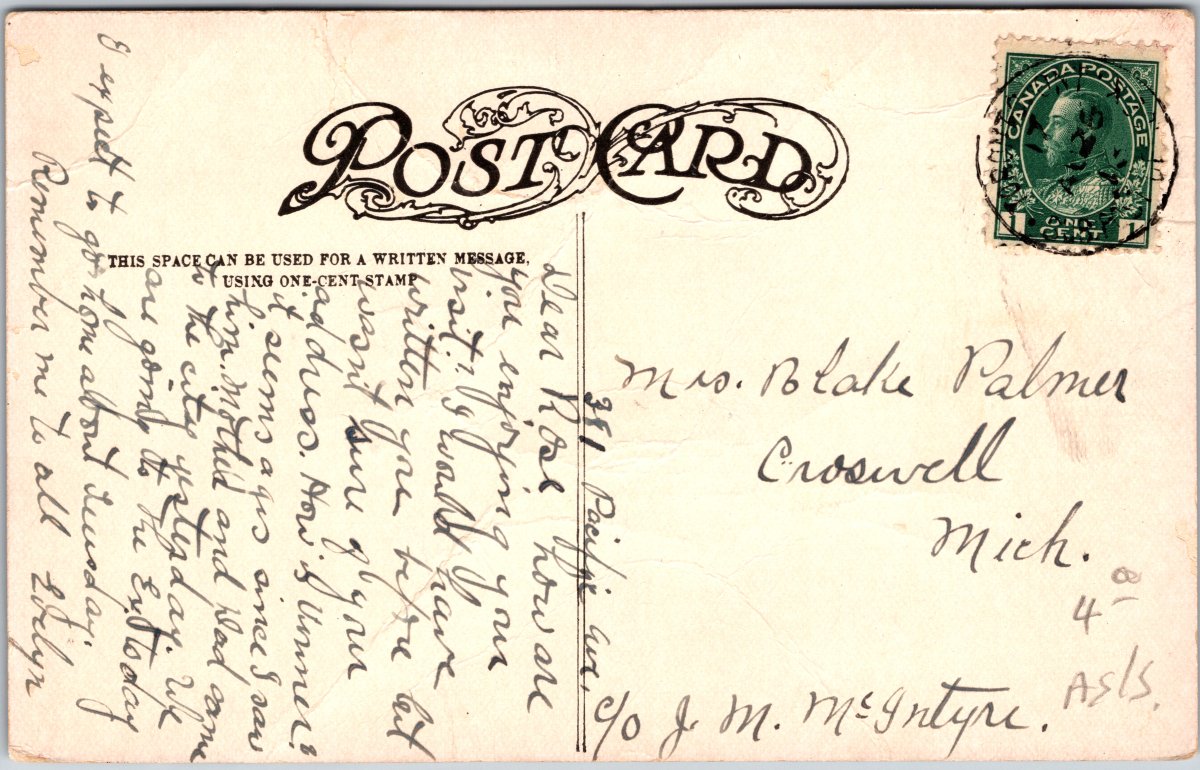 POST CARD
THIS SPACE CAN BE USED FOR A WRITTEN MESSAGE,
USING ONE-CENT STAMP
CANADA POSTAGE
1 ONE CENT 1
Dear Rose how are
you enjoying your
visit? I would have
written you before but
wasn't sure of your
address. How is
it seems ages since I saw
him. Mother and Dad came
to the city yesterday. We
are going to the Ex. today
I expect to go home about Tuesday.
Remember me to all Evelyn
381 Pacific Ave.
Mrs. Blake Palmer
Croswell
Mich.
c/o J. M. McIntyre.
4